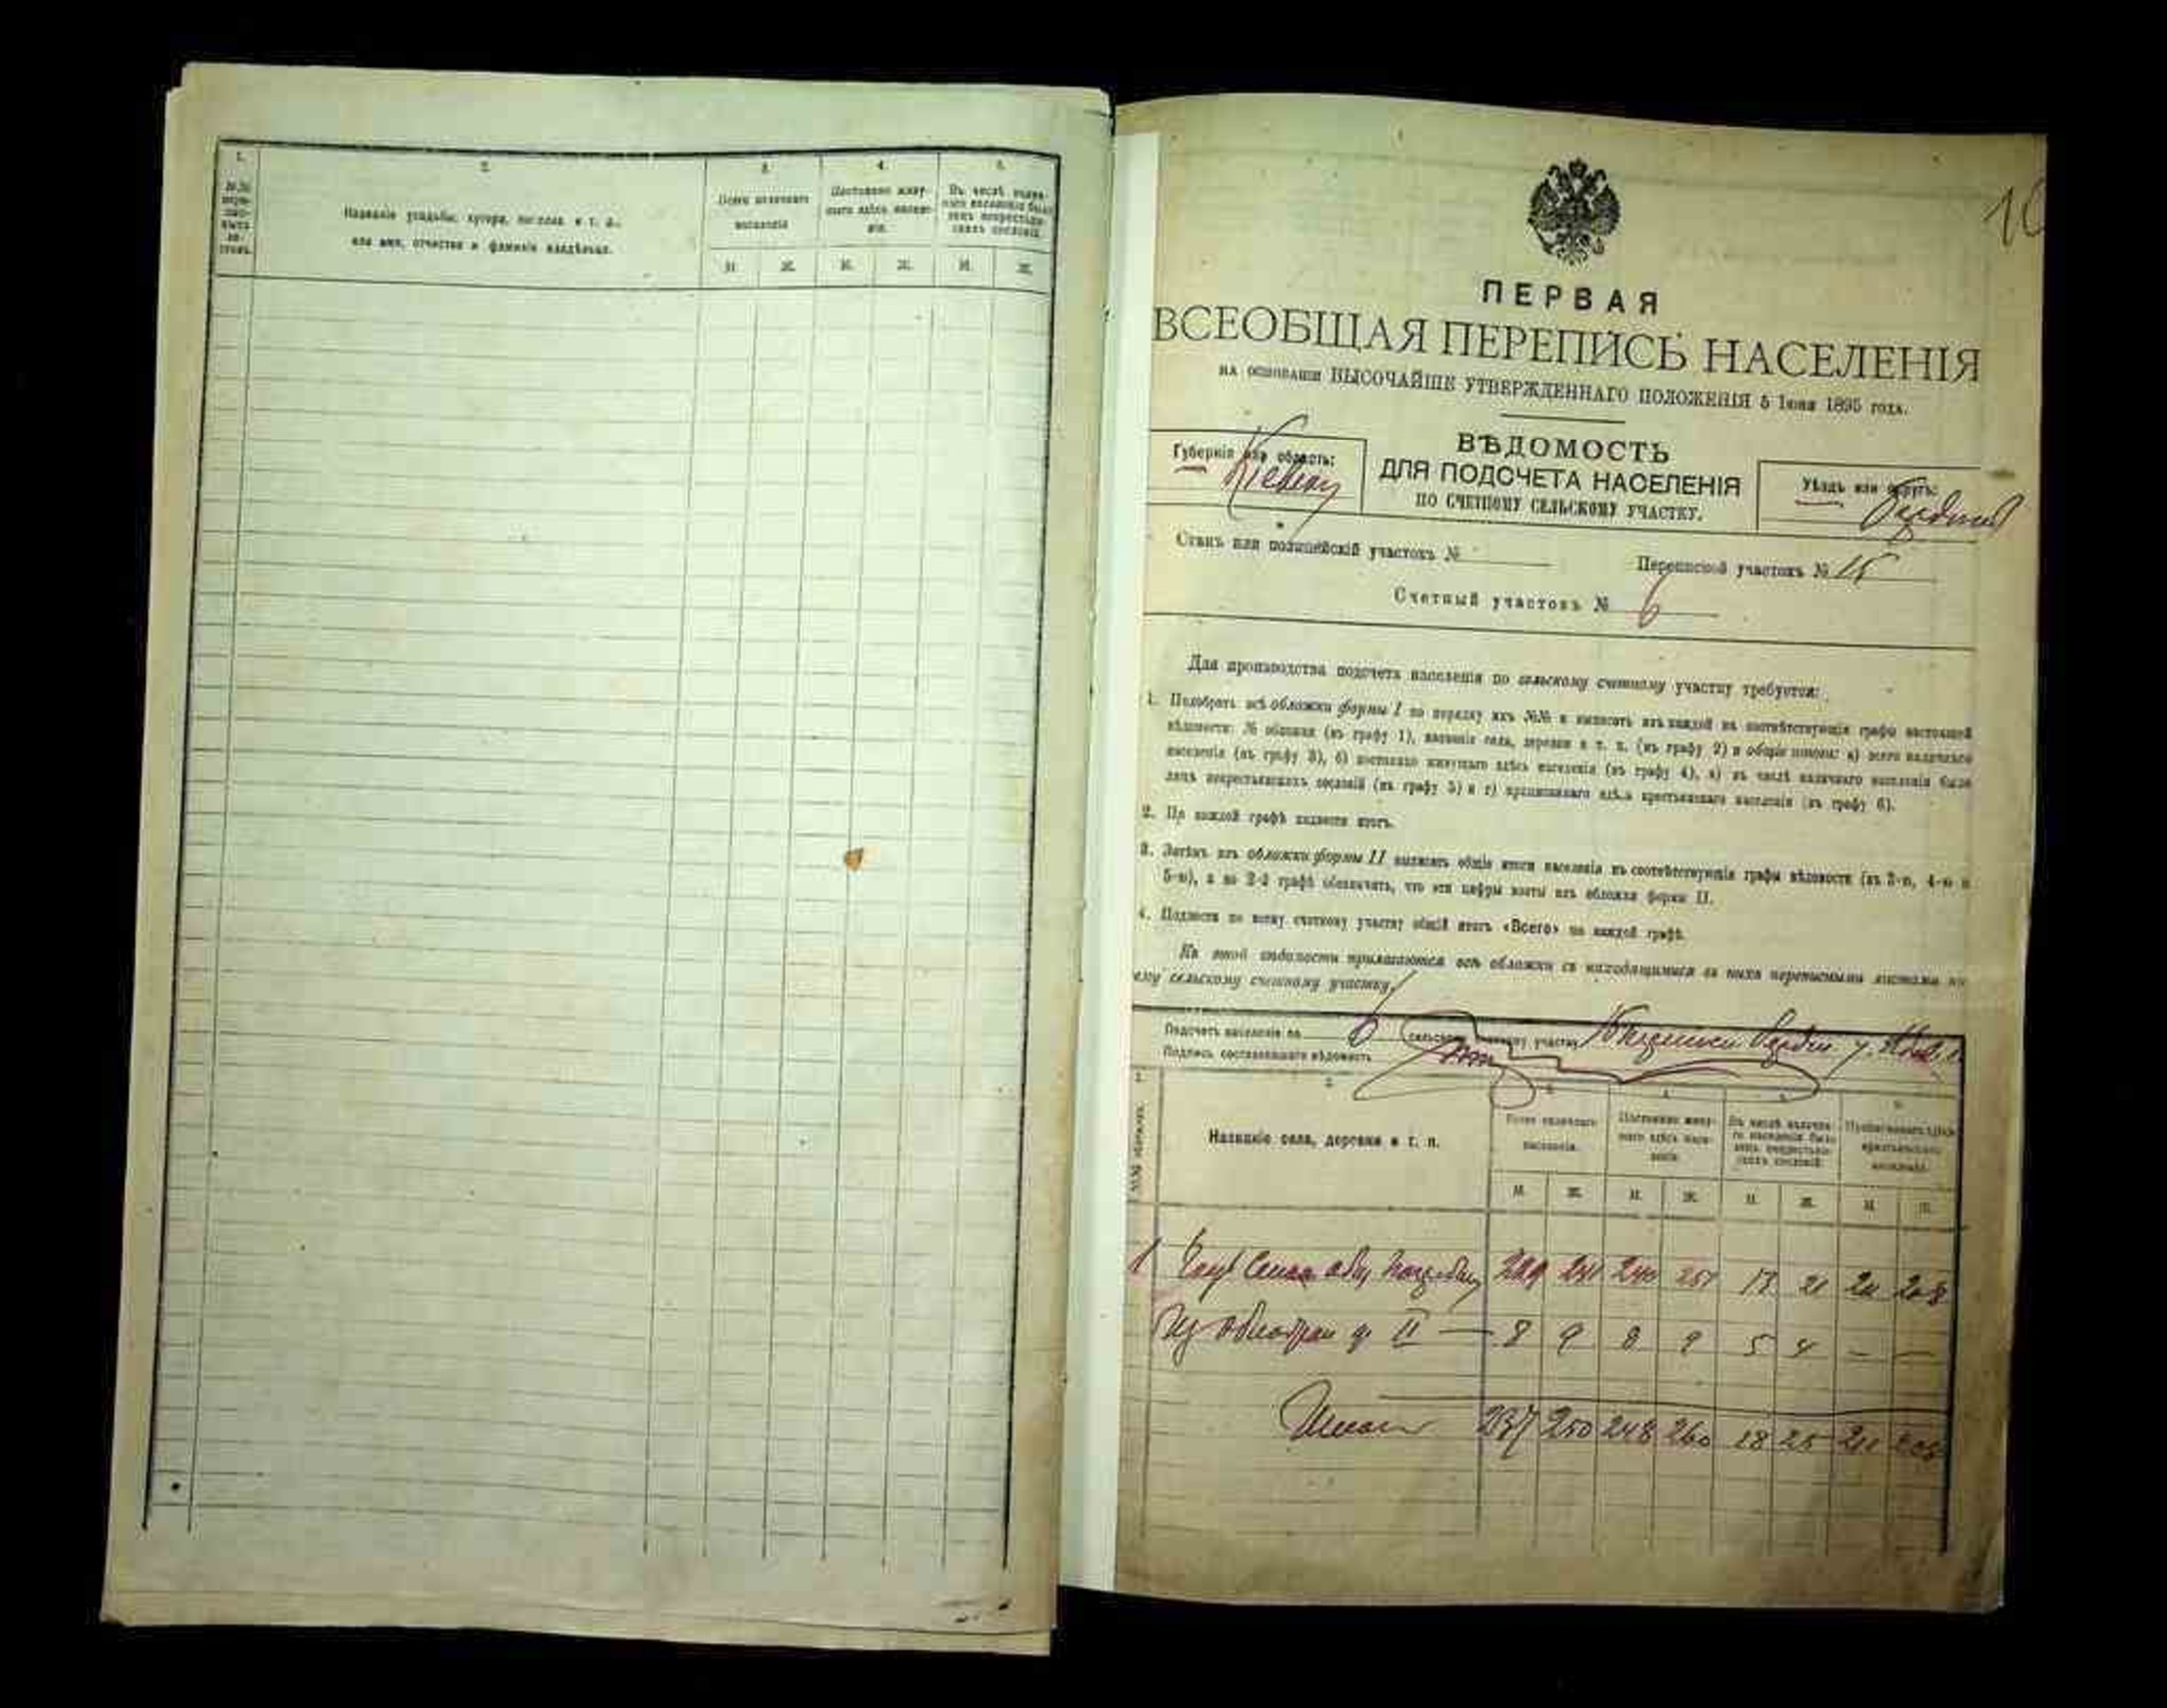 1.
№№
2.
Названіе усадьбы, хутора, поселка и т. д.,
или имя, отчество и фамилія владѣльца.
3.
Всего наличнаго
населенія
4.
Постоянно живу-
щаго здѣсь населе-
нія.
5.
Въ числѣ налич-
наго населенія было
лицъ некрестьян-
скихъ сословій.
М. Ж. М. Ж. М. Ж.
ПЕРВАЯ
ВСЕОБЩАЯ ПЕРЕПИСЬ НАСЕЛЕНІЯ
НА ОСНОВАНІИ ВЫСОЧАЙШЕ УТВЕРЖДЕННАГО ПОЛОЖЕНІЯ 5 Іюня 1895 года.
Губернія или область:
ВѢДОМОСТЬ
ДЛЯ ПОДСЧЕТА НАСЕЛЕНІЯ
ПО СЧЕТНОМУ СЕЛЬСКОМУ УЧАСТКУ.
Уѣздъ или округъ:
Станъ или полицейскій участокъ №
Переписной участокъ № 15
Счетный участокъ № 6
Для производства подсчета населенія по сельскому счетному участку требуется:
1. Подобрать всѣ обложки формы I по порядку ихъ №№ и выписать изъ каждой въ соотвѣтствующія графы настоящей
вѣдомости: № обложки (въ графу 1), названіе села, деревни и т. п. (въ графу 2) и общіе итоги: а) всего наличнаго
населенія (въ графу 3), б) постоянно живущаго здѣсь населенія (въ графу 4), в) въ числѣ наличнаго населенія было
лицъ некрестьянскихъ сословій (въ графу 5) и г) приписаннаго здѣсь крестьянскаго населенія (въ графу 6).
2. По каждой графѣ подвести итогъ.
3. Затѣмъ изъ обложки формы II выписать общіе итоги населенія въ соотвѣтствующія графы вѣдомости (въ 3-ю, 4-ю и
5-ю), а во 2-й графѣ обозначить, что эти цифры взяты изъ обложки формы II.
4. Подвести по всему счетному участку общій итогъ «Всего» по каждой графѣ.
Къ этой вѣдомости прилагаются всѣ обложки съ находящимися въ нихъ переписными листами по
ему сельскому счетному участку.
Подсчетъ населенія по 6 сельскому счетному участку
Подпись составлявшаго вѣдомость
№№ обложекъ.
Названіе села, деревни и т. п.
Всего наличнаго
населенія.
Постоянно живу-
щаго здѣсь насе-
ленія.
Въ числѣ налична-
го населенія было
лицъ некрестьян-
скихъ сословій.
Приписаннаго здѣсь
крестьянскаго
населенія.
М. Ж. М. Ж. М. Ж. М. Ж.
1 229 241 240 251 13 21 211 208
II — 8 9 8 9 5 4 — —
Итого 237 250 248 260 18 25 211 208